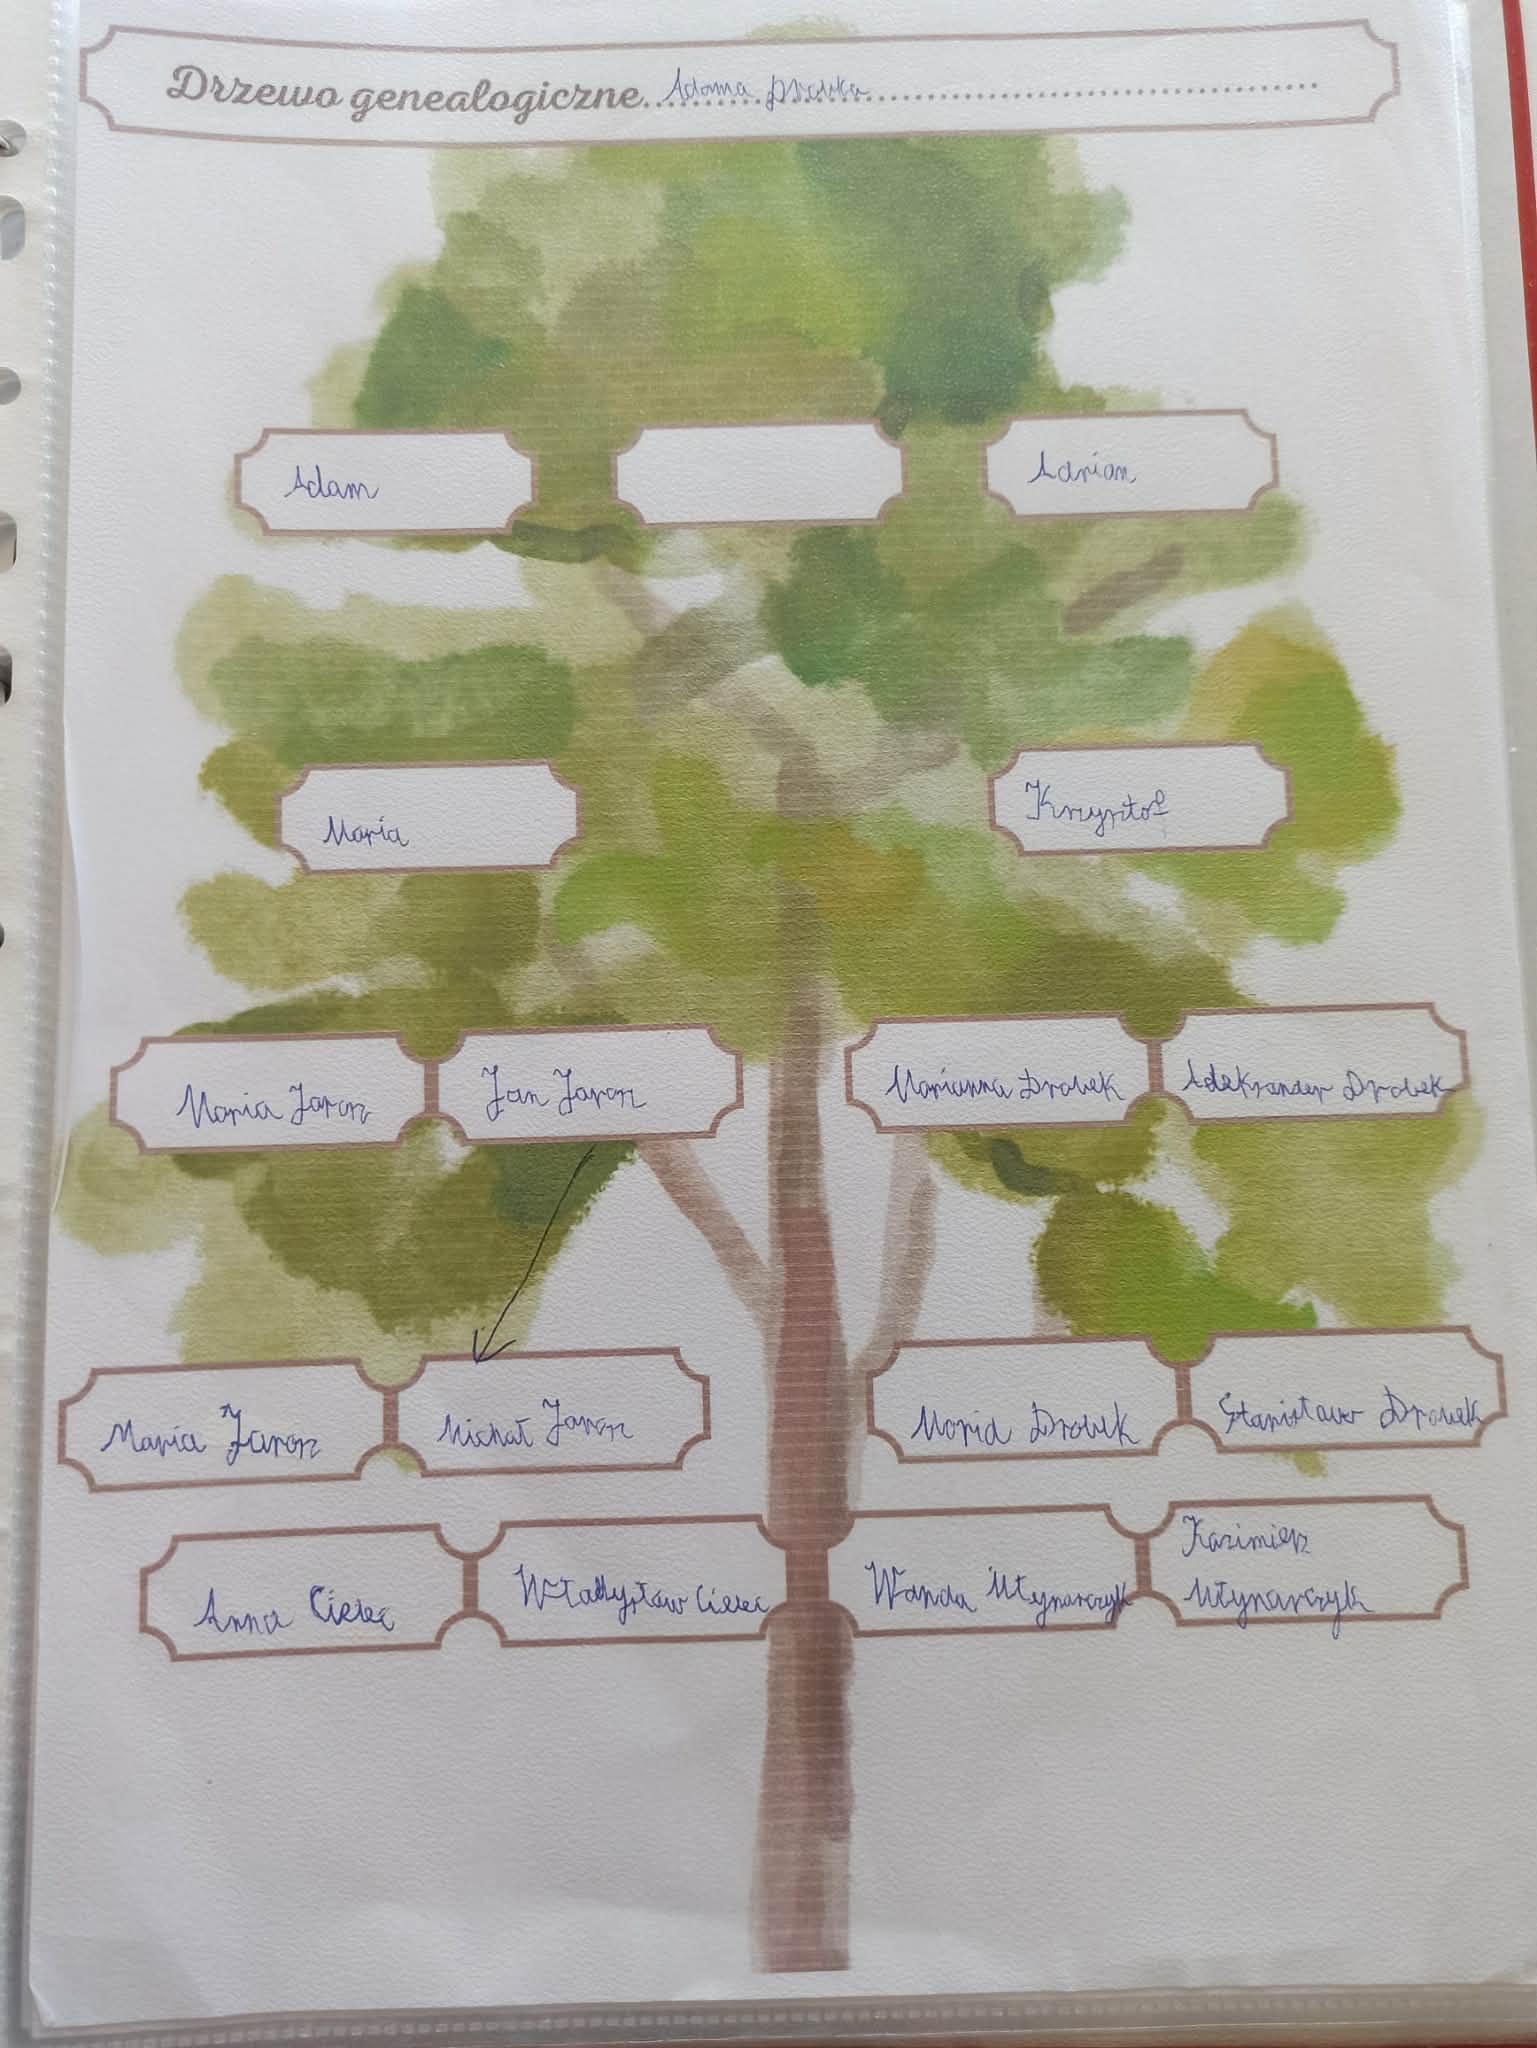 Drzewo genealogiczne Adama Drabka
Adam
Adrian
Maria
Krzysztof
Maria Jaroń
Jan Jaroń
Marianna Drabek
Aleksander Drabek
Maria Jaroń
Michał Jaroń
Maria Drabek
Stanisław Drabek
Anna Cielec
Władysław Cielec
Wanda Młynarczyk
Kazimierz
Młynarczyk